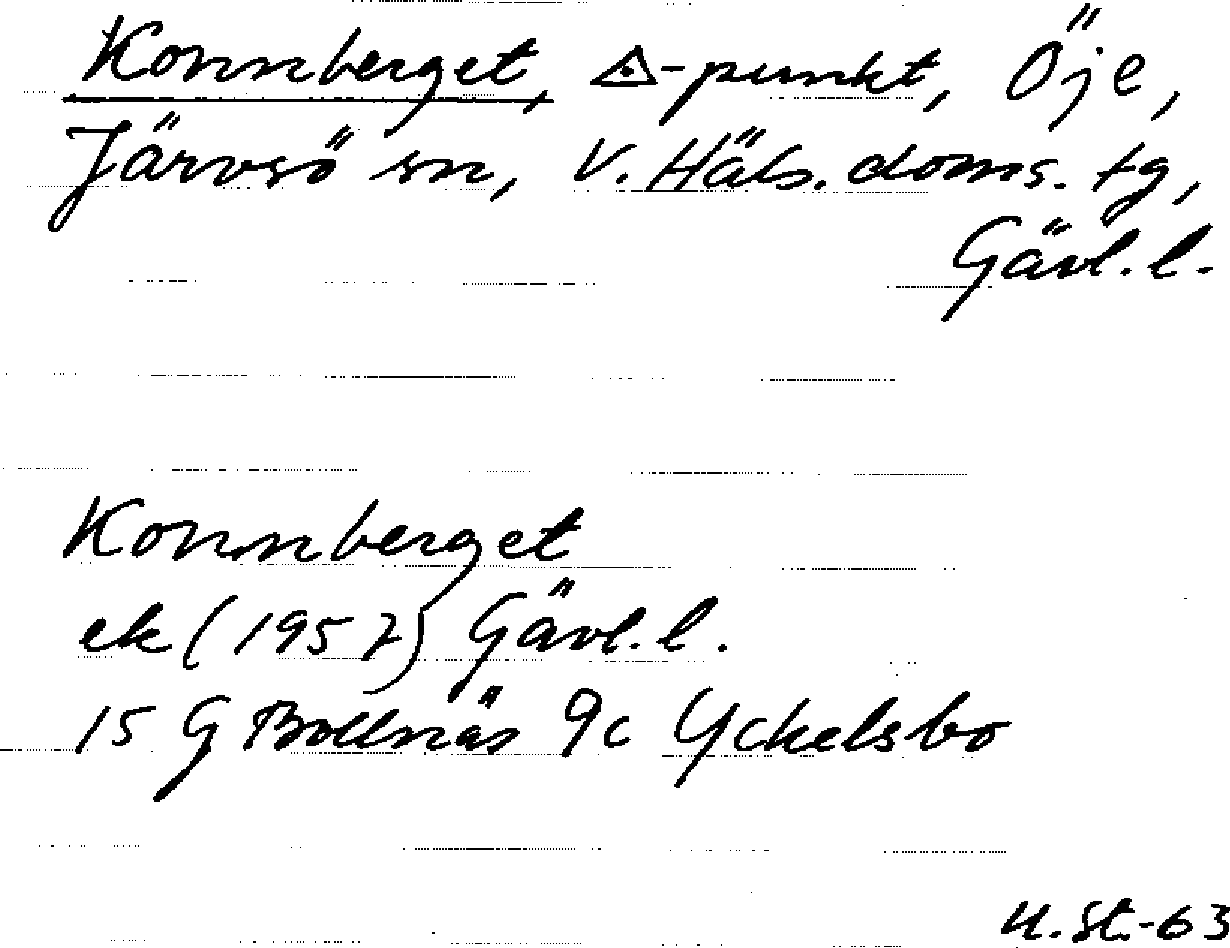 Konnberget, ◬-punkt, Öje,
Järvsö sn, V. Häls. doms. tg,
Gävl. l.
Konnberget
ek (1957) Gävl. l.
15 G Bollnäs 9c Yckelsbo
U.St.-63